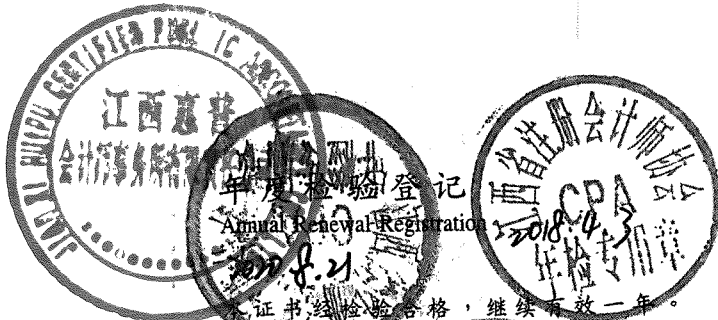 JIANGXI HUIPU CERTIFIED PUBLIC
江西惠普
会计师事务所有限
年度检验登记
Annual Renewal Registration
江西省注册会计师协会
CPA
2018.4.3
年检专用章
8.21
本证书经检验合格，继续有效一年。